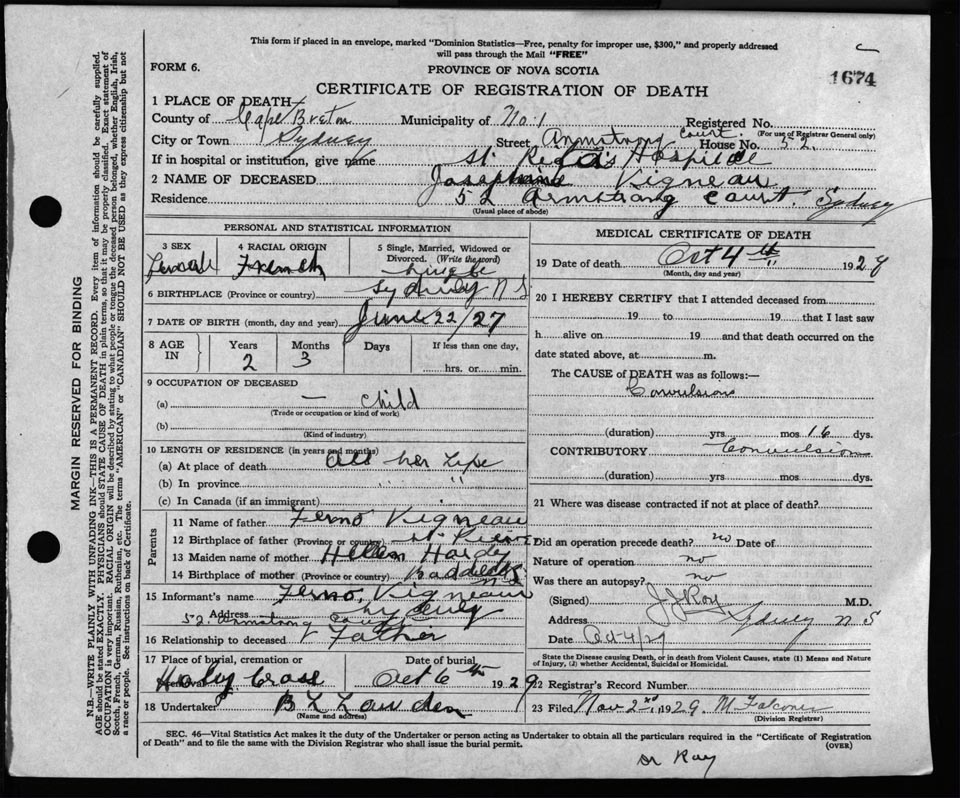 This form if placed in an envelope, marked "Dominion Statistics—Free, penalty for improper use, $300," and properly addressed
will pass through the Mail "FREE"
FORM 6.
PROVINCE OF NOVA SCOTIA
1674
CERTIFICATE OF REGISTRATION OF DEATH
1 PLACE OF DEATH
County of Cape Breton Municipality of No. 1 Registered No.
(For use of Registrar General only)
City or Town Sydney Street Armstrong Court. House No. 52.
If in hospital or institution, give name St. Hospital
2 NAME OF DECEASED Josephine Vigneau
Residence 52 Armstrong Court. Sydney
(Usual place of abode)
PERSONAL AND STATISTICAL INFORMATION
3 SEX 4 RACIAL ORIGIN 5 Single, Married, Widowed or
Divorced. (Write the word)
Female French Single
6 BIRTHPLACE (Province or country) Sydney N S
7 DATE OF BIRTH (month, day and year) June 22/27
8 AGE IN Years Months Days If less than one day,
2 3 hrs. or min.
9 OCCUPATION OF DECEASED
(a) — Child
(Trade or occupation or kind of work)
(b)
(Kind of industry)
10 LENGTH OF RESIDENCE (in years and months)
(a) At place of death All her Life
(b) In province " "
(c) In Canada (if an immigrant)
Parents
11 Name of father Ferno Vigneau
12 Birthplace of father (Province or country) St. Pierre
13 Maiden name of mother Hellen Hardy
14 Birthplace of mother (Province or country) Baddeck N S
15 Informant's name Ferno, Vigneau
Address 52 Armstrong Court Sydney
16 Relationship to deceased Father
17 Place of burial, cremation or removal Date of burial
Holy Cross Oct 6th 1929
18 Undertaker B L Lawden
(Name and address)
MEDICAL CERTIFICATE OF DEATH
19 Date of death Oct 4th 1929
(Month, day and year)
20 I HEREBY CERTIFY that I attended deceased from
19 to 19 that I last saw
h alive on 19 and that death occurred on the
date stated above, at m.
The CAUSE of DEATH was as follows:—
Convulsion
(duration) yrs mos 16 dys.
CONTRIBUTORY Convulsion
(duration) yrs. mos. dys.
21 Where was disease contracted if not at place of death?
Did an operation precede death? no Date of
Nature of operation no
Was there an autopsy? no
(Signed) J J Roy M.D.
Address Sydney N S
Date Oct 4/29
State the Disease causing Death, or in death from Violent Causes, state (1) Means and Nature
of Injury, (2) whether Accidental, Suicidal or Homicidal.
22 Registrar's Record Number
23 Filed Nov 2nd, 1929. M Falconer
(Division Registrar)
SEC. 46—Vital Statistics Act makes it the duty of the Undertaker or person acting as Undertaker to obtain all the particulars required in the "Certificate of Registration
of Death" and to file the same with the Division Registrar who shall issue the burial permit.
(OVER)
Dr Roy
MARGIN RESERVED FOR BINDING
N.B.—WRITE PLAINLY WITH UNFADING INK—THIS IS A PERMANENT RECORD. Every item of information should be carefully supplied.
AGE should be stated EXACTLY. PHYSICIANS should STATE CAUSE OF DEATH in plain terms, so that it may be properly classified. Exact statement of
OCCUPATION is very important. RACIAL ORIGIN will be described by stating to what people or tongue the deceased person belonged, whether English, Irish,
Scotch, French, German, Russian, Ruthenian, etc. The terms "AMERICAN" or "CANADIAN" SHOULD NOT BE USED as they express citizenship but not
a race or people. See instructions on back of Certificate.